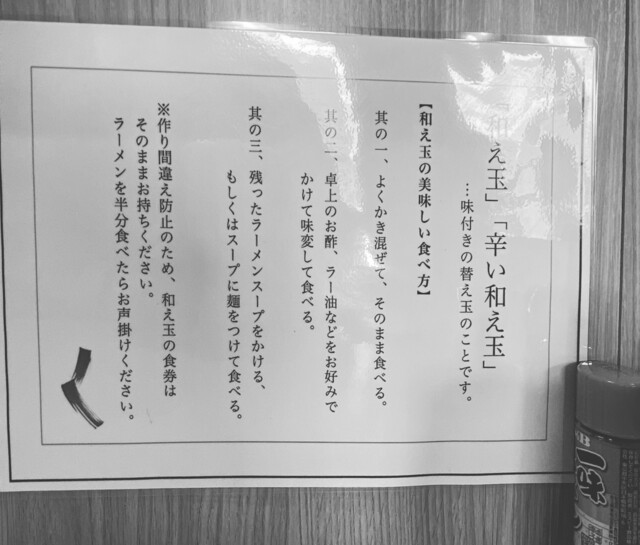 「和え玉」「辛い和え玉」
…味付きの替え玉のことです。
【和え玉の美味しい食べ方】
其の一、よくかき混ぜて、そのまま食べる。
其の二、卓上のお酢、ラー油などをお好みで
かけて味変して食べる。
其の三、残ったラーメンスープをかける、
もしくはスープに麺をつけて食べる。
※作り間違え防止のため、和え玉の食券は
そのままお持ちください。
ラーメンを半分食べたらお声掛けください。
く
一味